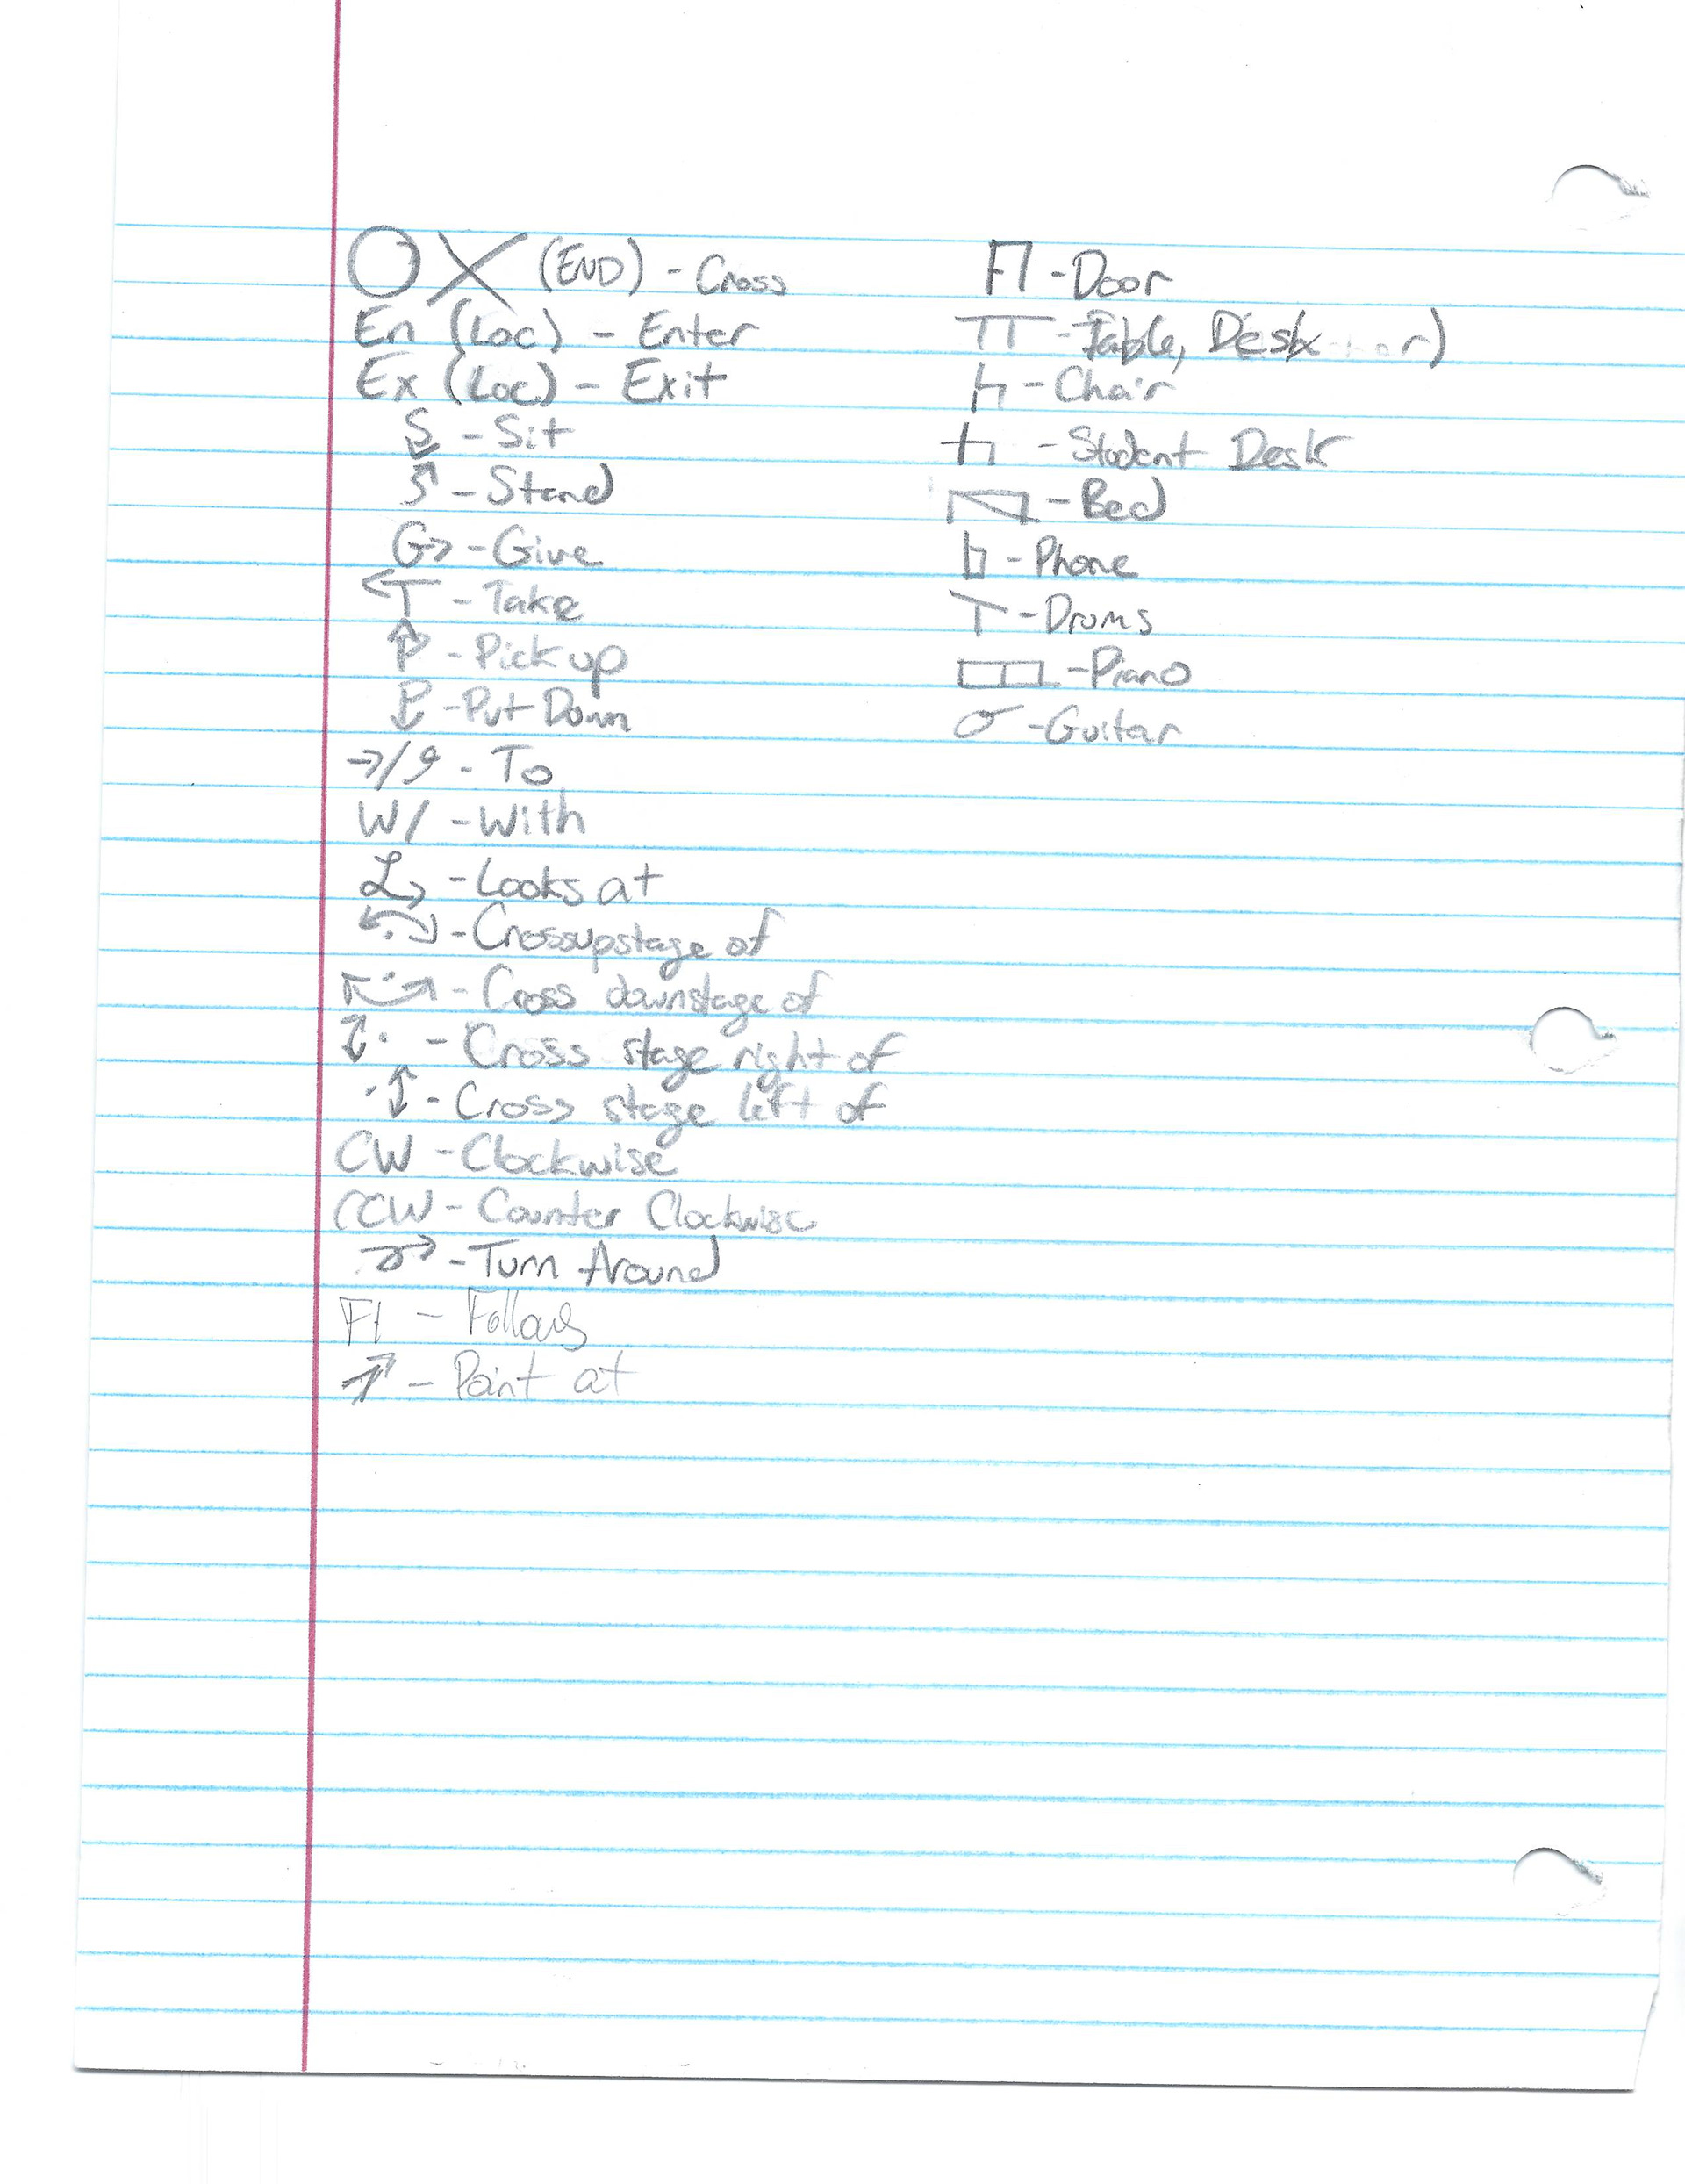 O X (END) - Cross
En (Loc) - Enter
Ex (Loc) - Exit
S - Sit
S - Stand
G→ - Give
←T - Take
P↑ - Pick up
P↓ - Put Down
→/ - To
W/ - With
L→ - Looks at
- Cross upstage of
- Cross downstage of
↕· - Cross stage right of
·↕ - Cross stage left of
CW - Clockwise
CCW - Counter Clockwise
- Turn Around
Fl - Follows
↗ - Point at
- Door
- Table, Desk
- Chair
- Student Desk
- Bed
- Phone
- Drums
- Piano
- Guitar